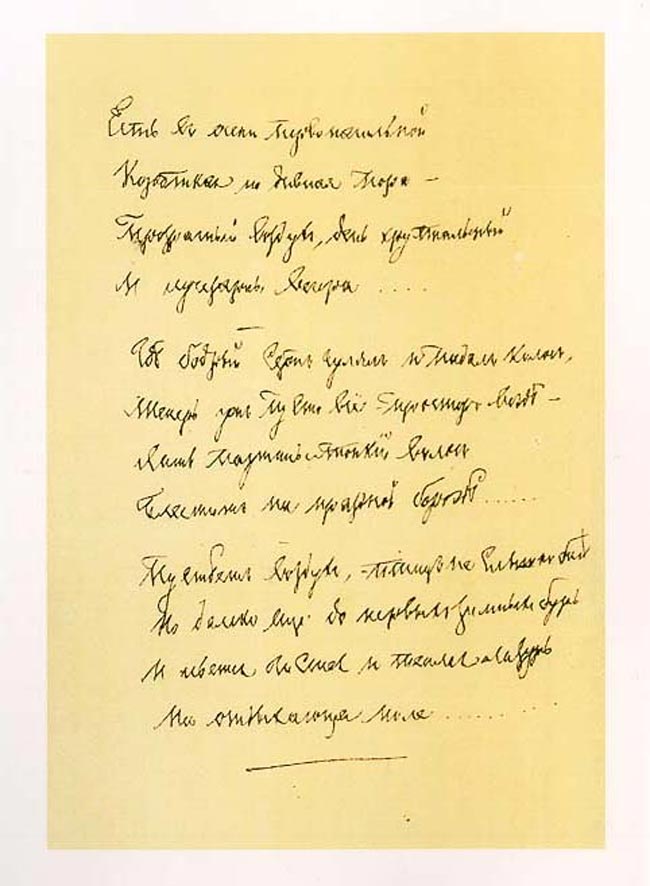 Есть въ осени первоначальной
Короткая но дивная пора —
Прозрачный воздухъ, день хрустальный
И лучезарны вечера ....
Гдѣ бодрый Серпъ гулялъ и падалъ колосъ,
Теперь ужъ пусто все – просторъ вездѣ —
Лишь паутины тонкій волосъ
Блеститъ на праздной бороздѣ ......
Пустѣетъ воздухъ, – птицъ не слышно болѣ
Но далеко еще до первыхъ зимнихъ бурь
И льется чистая и теплая лазурь
На отдыхающее поле .........